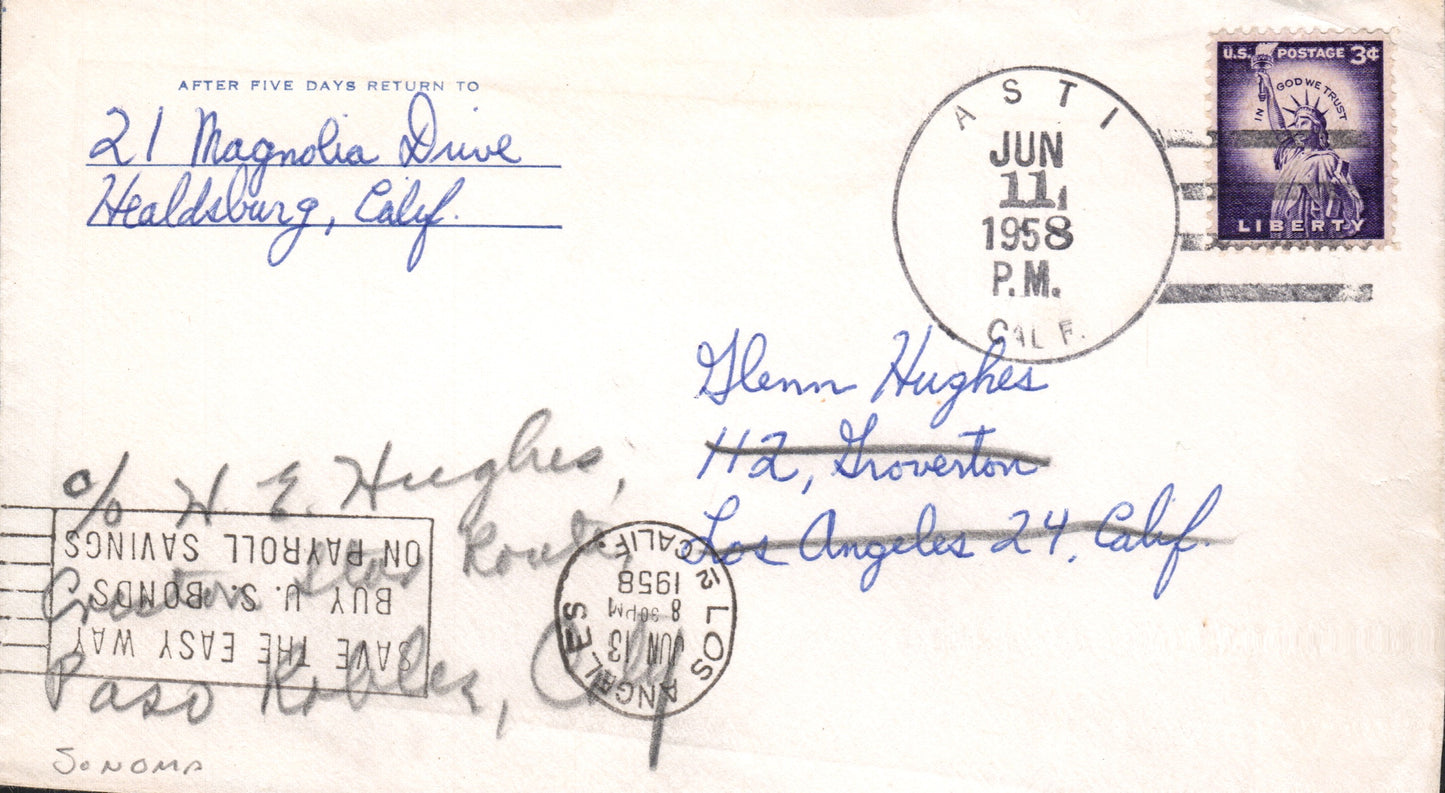 AFTER FIVE DAYS RETURN TO
21 Magnolia Drive
Healdsburg, Calif.
ASTI
JUN
11
1958
P.M.
CALIF.
U.S. POSTAGE 3¢
IN GOD WE TRUST
LIBERTY
Glenn Hughes
112, Groverton
Los Angeles 24, Calif.
c/o H. E. Hughes,
Creston Star Route,
Paso Robles, Calif
SAVE THE EASY WAY
BUY U. S. BONDS
ON PAYROLL SAVINGS
LOS ANGELES CALIF.
12
JUN 13
8 30 PM
1958
SONOMA